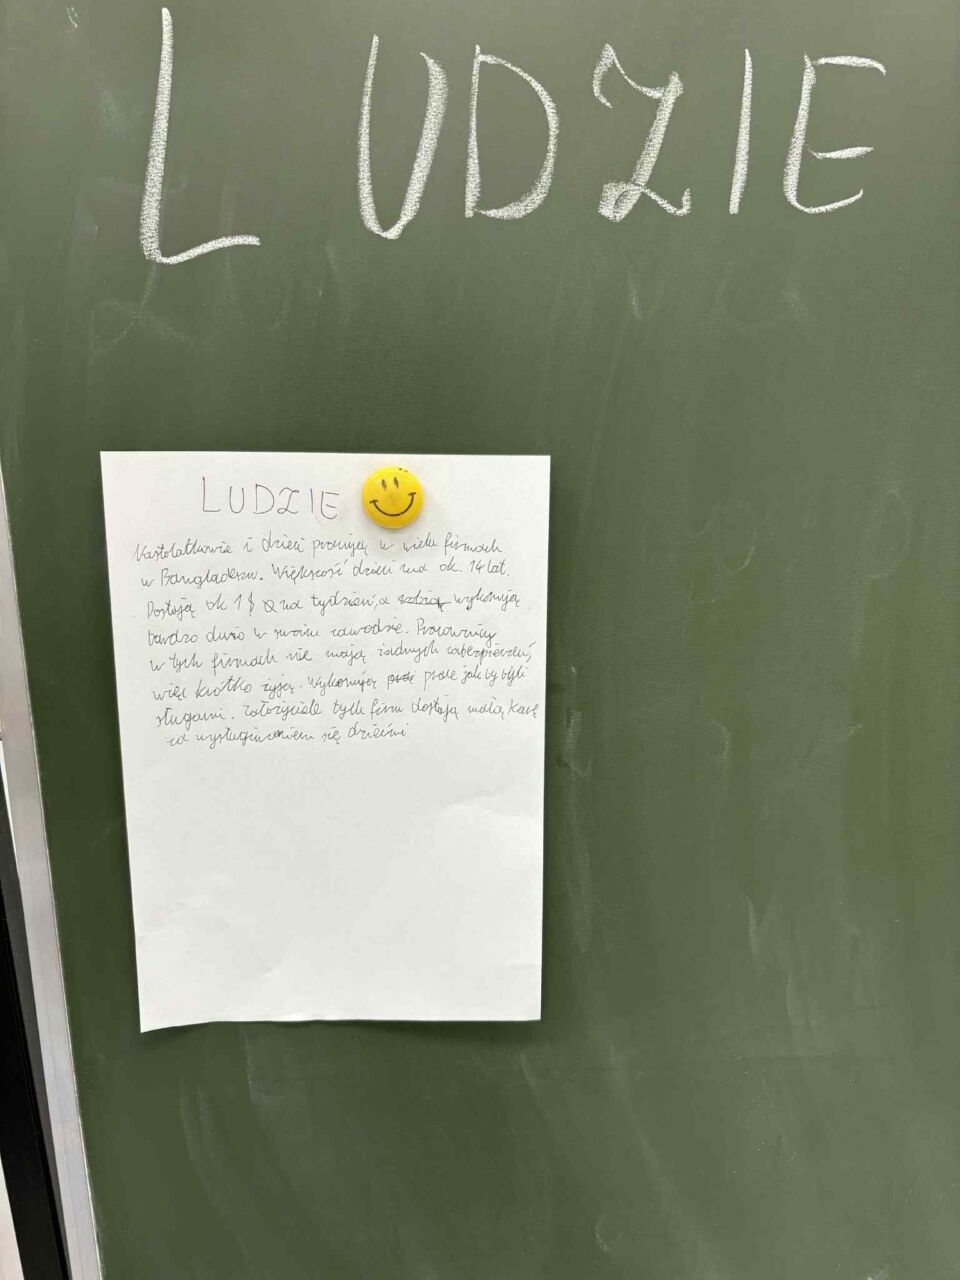 LUDZIE
LUDZIE
Nastolatkowie i dzieci pracują w wielu firmach
w Bangladeszu. Większość dzieci ma ok. 14 lat.
Dostają ok 1 $ na tydzień, a wykonują
bardzo dużo w swoim zawodzie. Pracownicy
w tych firmach nie mają żadnych zabezpieczeń,
więc krótko żyją. Wykonują prace jak by byli
sługami. Założyciele tych firm dostają małą karę
za wysługiwaniem się dziećmi